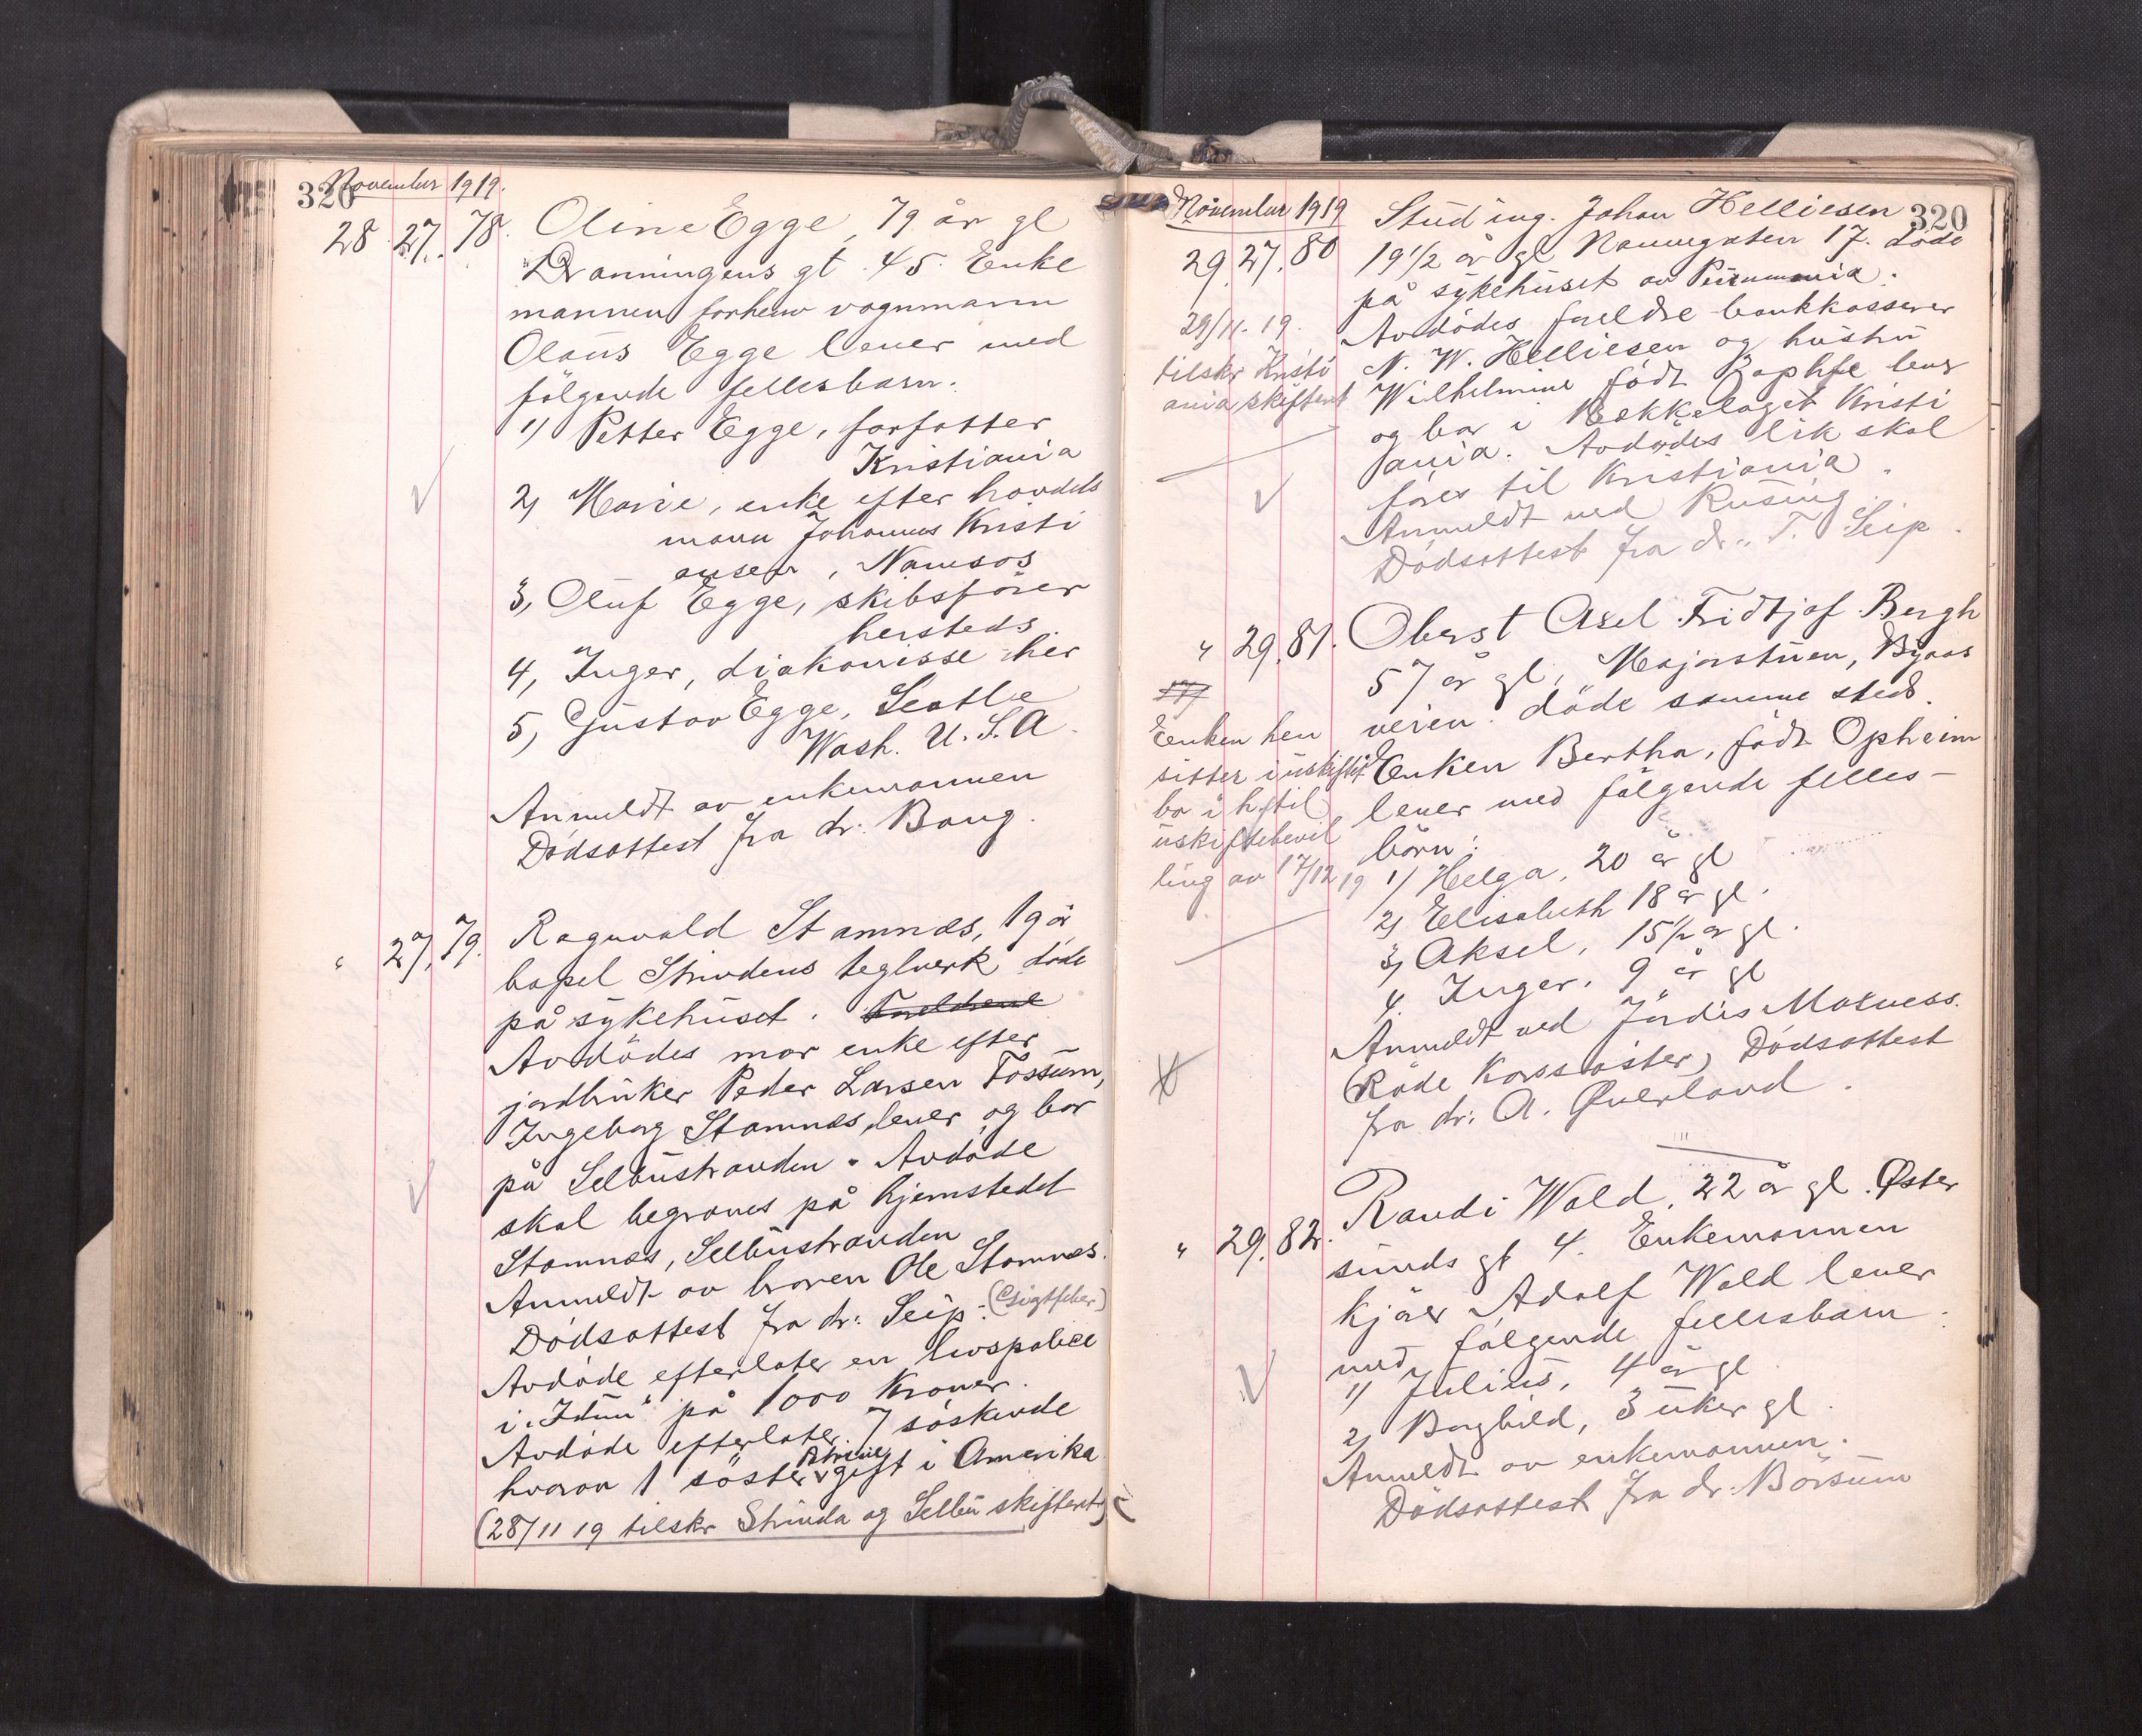 320
November 1919.
28 27. 78. Oline Egge, 79 år gl
Dronningens gt. 45. Enke
mannen forhenv vognmann
Olaus Egge lever med
følgende fellesbarn.
1) Petter Egge, forfatter
Kristiania
2) Marie, enke efter handels
mann Johannes Kristi
ansen, Namsos
3, Oluf Egge, skibsfører
hersteds.
4, Inger, diakonisse her
5, Gustav Egge, Seatle
Wash. U.S.A.
Anmeldt av enkemannen
Dødsattest fra dr: Bang.
" 27, 79. Ragnvald Stamnes, 19 år
bopel Strindens teglverk døde
på sykehuset. Foreldrene
Avdødes mor enke efter
jordbruker Peder Larsen Fossum,
Ingeborg Stamnes, lever og bor
på Selbustranden. Avdøde
skal begraves på hjemstedet
Stamnes, Selbustranden
Anmeldt av broren Ole Stamnes.
Dødsattest fra dr: Seip.
Avdøde efterlater en livspolice
i "Idun" på 1000 Kroner.
Avdøde efterlater 7 søskende
hvorav 1 søster gift i Amerika
(28/11 19 tilskr Strinda og Selbu skifteret)
320
November 1919
29. 27. 80 Stud ing. Johan Helliesen
19 1/2 år gl. Nonnegaten 17. døde
på sykehuset av
29/11. 19. Avdødes foreldre bankkasserer
tilskr Kristi N. W. Helliesen og hustru
ania skifteret Wilhelmine født lever
og bor i Bekkelaget Kristi
ania. Avdødes lik skal
føres til Kristiania.
Anmeldt ved Rusing.
Dødsattest fra dr: T. Seip.
" 29. 81. Oberst Axel Fridtjof Bergh
57 år gl, Majorstuen, Byaas
veien. døde samme sted.
Enken hen
sitter i uskiftet
bo i h. til
uskiftebevil
ling av 17/12 19
Enken Bertha, født Opheim
lever med følgende felles-
børn:
1) Helga, 20 år gl
2) Elisabeth 18 år gl.
3, Aksel, 15 1/2 år gl.
4. Inger, 9 år gl
Anmeldt ved Jørdis
(Røde Korssøster) Dødsattest
fra dr: A. Øverland.
" 29. 82. Randi Wold, 22 år gl. Øster
sunds gt 4. Enkemannen
kjører Adolf Wold lever
med følgende fellesbarn.
1) Julius, 4 år gl
2) Borghild, 3 uker gl.
Anmeldt av enkemannen.
Dødsattest fra dr: Børsum